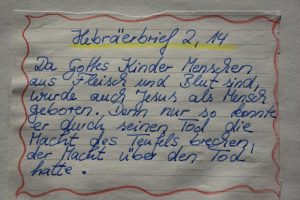 Hebräerbrief 2, 14
Da Gottes Kinder Menschen
aus Fleisch und Blut sind,
wurde auch Jesus als Mensch
geboren. Denn nur so konnte
er durch seinen Tod die
Macht des Teufels brechen,
der Macht über den Tod
hatte.